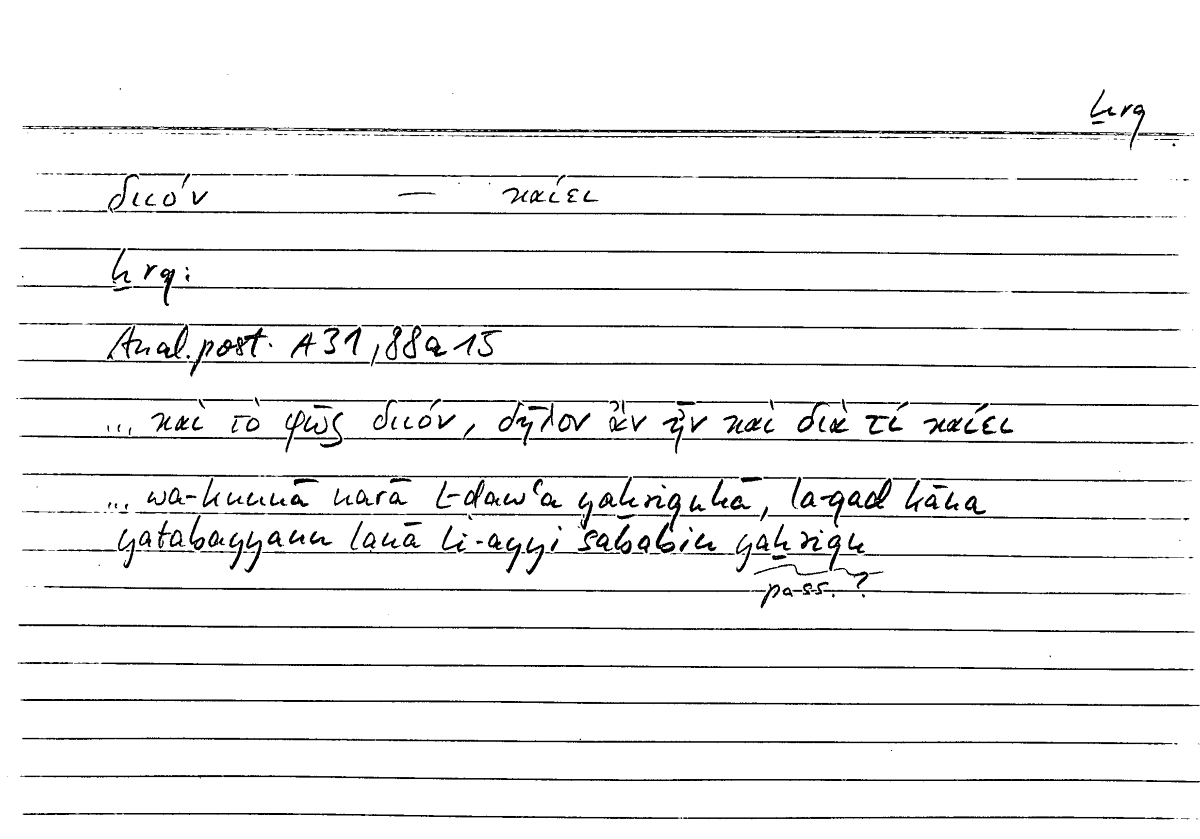 ẖrq
διιόν — καίει
ẖrq:
Anal. post. A 31, 88a 15
... καὶ τὸ φῶς διιόν, δῆλον ἂν ἦν καὶ διὰ τί καίει
... wa-kunnā narā l-dawʾa yaẖriquhā, la-qad kāna
yatabayyanu lanā li-ayyi sababin yaẖriqu
pass. ?